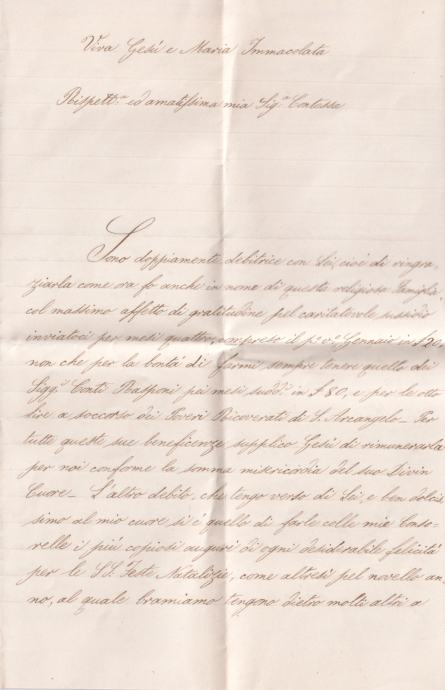 Viva Gesù e Maria Immacolata
Rispett.ma ed amatissima mia Sig.a Contessa
Sono doppiamente debitrice con Lei, cioè di ringra,
ziarla come ora fo anche in nome di questa religiosa Famiglia
col massimo affetto di gratitudine pel caritatevole sussidio
inviatoci per mesi quattro, compreso il p.o v.o Gennaio in £ 20,
non che per la bontà di farmi sempre tenere quello dei
Sigg.i Conti Rasponi pei mesi sudd.i in £ 80, e per le otto
lire a soccorso dei Poveri Ricoverati di S. Arcangelo_ Per
tutte queste sue beneficenze supplico Gesù di rimunerarla
per noi conforme la somma misericordia del suo Divin
Cuore_ L'altro debito, che tengo verso di Lei, e ben dolcis
simo al mio cuore si è quello di farle colle mie Conso,
relle i più copiosi auguri di ogni desiderabile felicità
per le SS. Feste Natalizie, come altresì pel novello an,
no, al quale bramiamo tengono dietro molti altri a